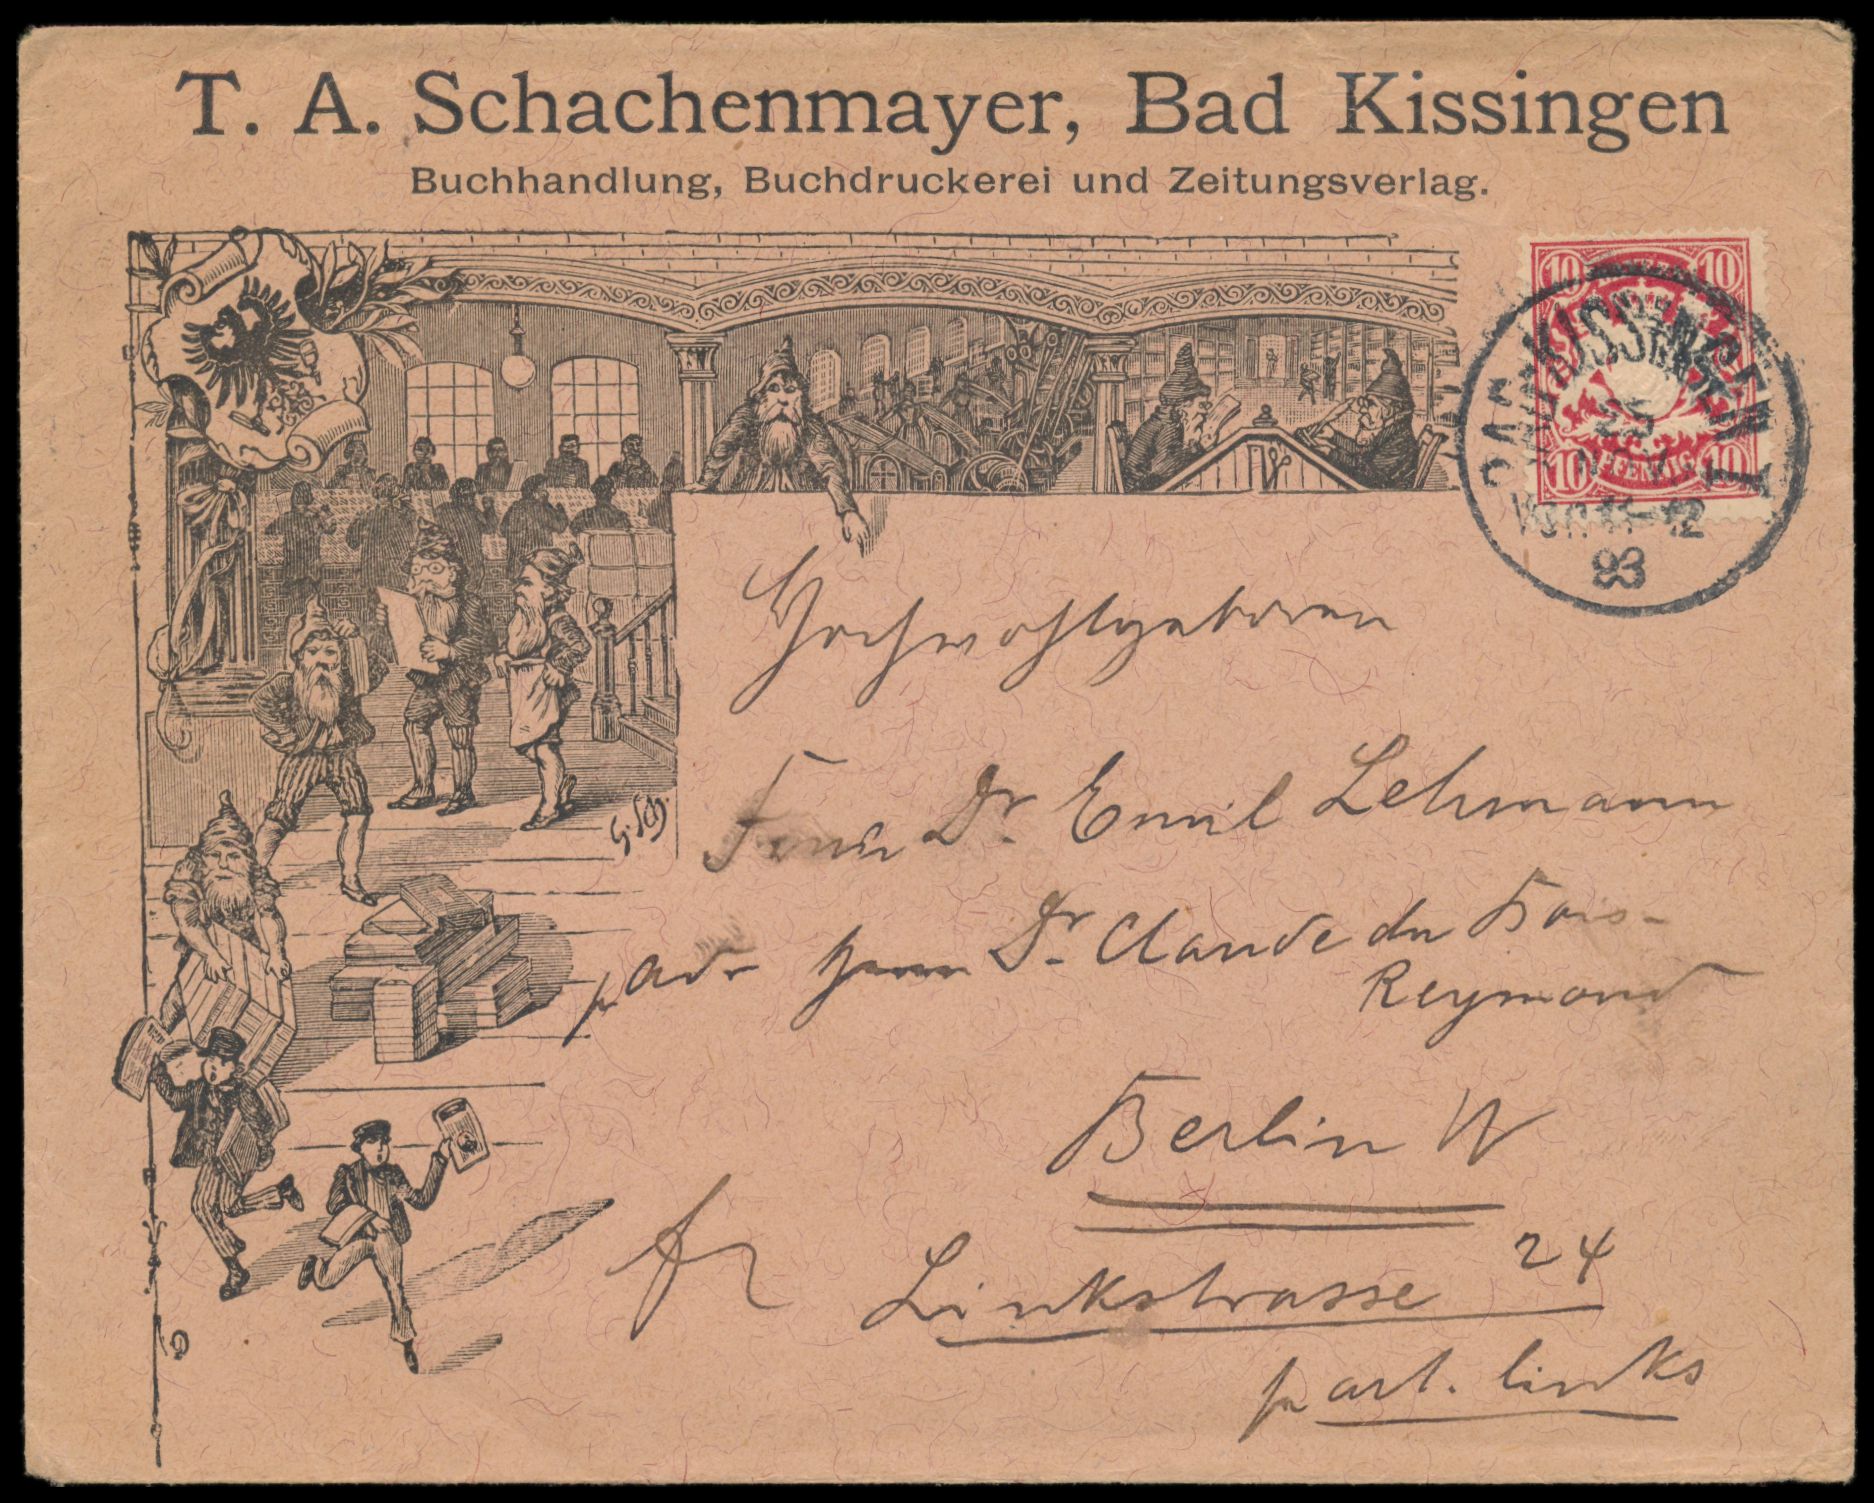 T. A. Schachenmayer, Bad Kissingen
Buchhandlung, Buchdruckerei und Zeitungsverlag.
10 10
10 PFENNIG 10
BAD KISSINGEN
VORM 11-12
93
G. Sch.
Hochwohlgeboren
Dr. Emil Lehmann
p adr Herrn Dr. Claude du Bois-
Reymond
Berlin W
fr
Linkstrasse 24
part. links